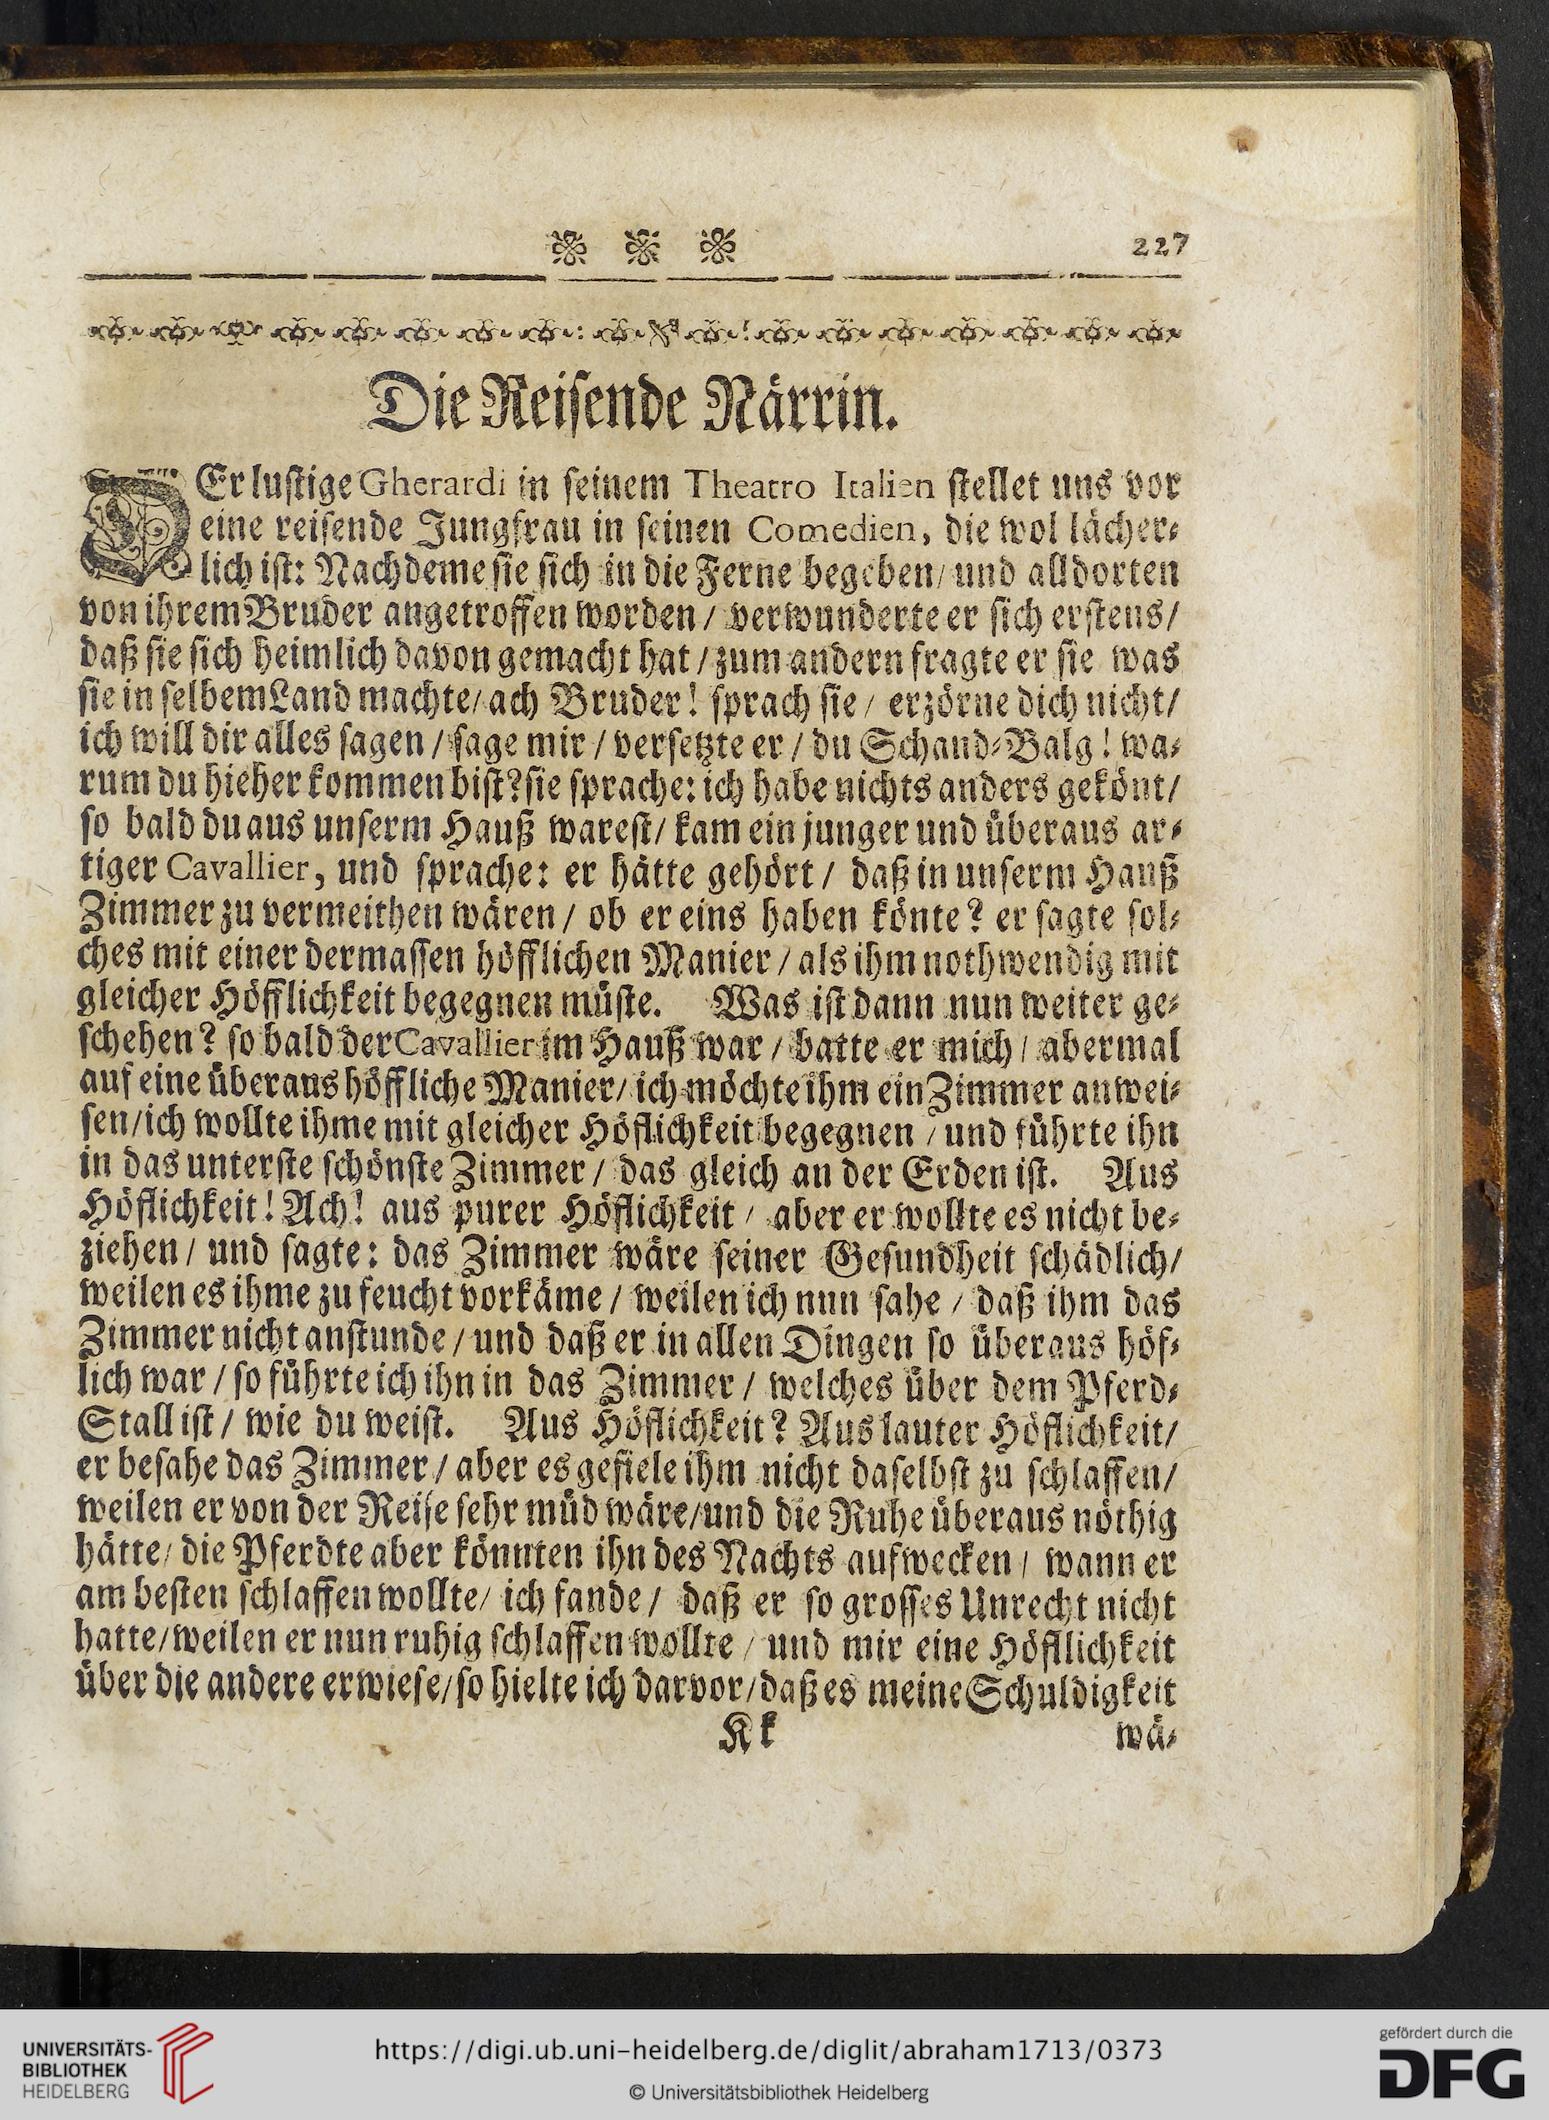 227
Die Reisende Närrin.
DEr lustige Gherardi in seinem Theatro Italien stellet uns vor
eine reisende Jungfrau in seinen Comedien, die wol lächer-
lich ist: Nachdeme sie sich in die Ferne begeben/ und alldorten
von ihrem Bruder angetroffen worden/ verwunderte er sich erstens/
daß sie sich heimlich davon gemacht hat/ zum andern fragte er sie was
sie in selbem Land machte/ ach Bruder! sprach sie/ erzörne dich nicht/
ich will dir alles sagen/ sage mir/ versetzte er/ du Schand-Balg! wa-
rum du hieher kommen bist? sie sprache: ich habe nichts anders gekönt/
so bald du aus unserm Hauß warest/ kam ein junger und überaus ar-
tiger Cavallier, und sprache: er hätte gehört/ daß in unserm Hauß
Zimmer zu vermeithen wären/ ob er eins haben könte? er sagte sol-
ches mit einer dermassen höfflichen Manier/ als ihm nothwendig mit
gleicher Höfflichkeit begegnen müste. Was ist dann nun weiter ge-
schehen? so bald der Cavallier im Hauß war/ batte er mich/ abermal
auf eine überaus höffliche Manier/ ich möchte ihm ein Zimmer anwei-
sen/ ich wollte ihme mit gleicher Höflichkeit begegnen/ und führte ihn
in das unterste schönste Zimmer/ das gleich an der Erden ist. Aus
Höflichkeit! Ach! aus purer Höflichkeit/ aber er wollte es nicht be-
ziehen/ und sagte: das Zimmer wäre seiner Gesundheit schädlich/
weilen es ihme zu feucht vorkäme/ weilen ich nun sahe/ daß ihm das
Zimmer nicht anstunde/ und daß er in allen Dingen so überaus höf-
lich war/ so führte ich ihn in das Zimmer/ welches über dem Pferd-
Stall ist/ wie du weist. Aus Höflichkeit? Aus lauter Höflichkeit/
er besahe das Zimmer/ aber es gefiele ihm nicht daselbst zu schlaffen/
weilen er von der Reise sehr müd wäre/ und die Ruhe überaus nöthig
hätte/ die Pferdte aber könnten ihn des Nachts aufwecken/ wann er
am besten schlaffen wollte/ ich fande/ daß er so grosses Unrecht nicht
hatte/ weilen er nun ruhig schlaffen wollte/ und mir eine Höfllichkeit
über die andere erwiese/ so hielte ich darvor/ daß es meine Schuldigkeit
Kk wä-
UNIVERSITÄTS-
BIBLIOTHEK
HEIDELBERG
https://digi.ub.uni-heidelberg.de/diglit/abraham1713/0373
© Universitätsbibliothek Heidelberg
gefördert durch die
DFG